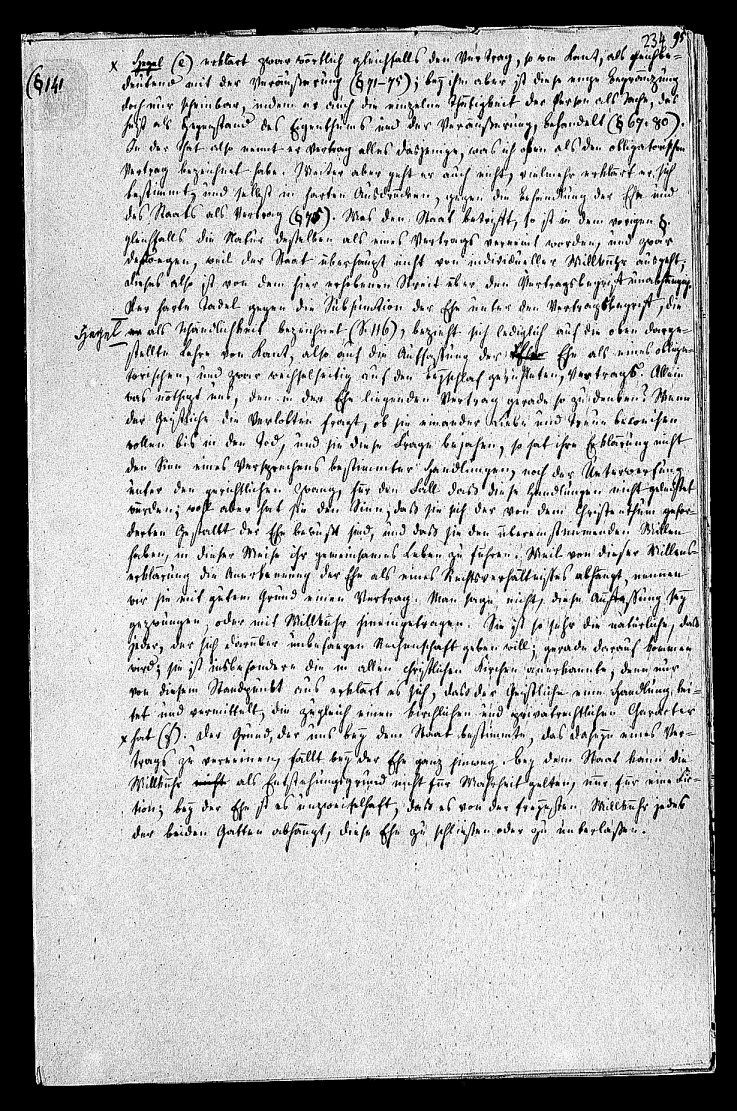 234 95
(§ 141
x Hegel (e) erklärt zwar wörtlich gleichfalls den Vertrag, so wie Kant, als gleichbe-
deutend mit der Veräußerung (§ 71-75); bey ihm aber ist diese enge Begränzung
doch nur scheinbar, indem er auch die einzelne Thätigkeit der Person als Sache, das
heißt als Gegenstand des Eigenthums und der Veräußerung, behandelt (§ 67. 80).
In der That also nennt er Vertrag alles dasjenige, was ich oben als den obligatorischen
Vertrag bezeichnet habe. Weiter aber geht er auch nicht, vielmehr erklärt er sich
bestimmt, und selbst in harten Ausdrücken, gegen die Behandlung der Ehe und
des Staats als Vertrag (§ 75). Was den Staat betrifft, so ist in dem vorigen §.
gleichfalls die Natur desselben als eines Vertrags verneint worden, und zwar
deswegen, weil der Staat überhaupt nicht von individueller Willkühr ausgeht;
dieses also ist von dem hier erhobenen Streit über den Vertragsbegriff unabhängig.
Der harte Tadel gegen die Subsumtion der Ehe unter den Vertragsbegriff, die
Hegel als Schändlichkeit bezeichnet (S. 116), bezieht sich lediglich auf die oben darge-
stellte Lehre von Kant, also auf die Auffassung der Ehe als eines obliga-
torischen, und zwar wechselseitig auf den Beyschlaf gerichteten, Vertrags. Allein
was nöthigt uns, den in der Ehe liegenden Vertrag gerade so zu denken? Wenn
der Geistliche die Verlobten fragt, ob sie einander Liebe und Treue beweisen
wollen bis in den Tod, und sie diese Frage bejahen, so hat ihre Erklärung nicht
den Sinn eines Versprechens bestimmter Handlungen, noch der Unterwerfung
unter den gerichtlichen Zwang, für den Fall daß diese Handlungen nicht geleistet
würden; wohl aber hat sie den Sinn, daß sie sich der von dem Christenthum gefor-
derten Gestalt der Ehe bewußt sind, und daß sie den übereinstimmenden Willen
haben, in dieser Weise ihr gemeinsames Leben zu führen. Weil von dieser Willens-
erklärung die Anerkennung der Ehe als eines Rechtsverhältnisses abhängt, nennen
wir sie mit gutem Grund einen Vertrag. Man sage nicht, diese Auffassung sey
gezwungen, oder mit Willkühr hineingetragen. Sie ist so sehr die natürliche, daß
jeder, der sich darüber unbefangen Rechenschaft geben will, gerade darauf kommen
wird; sie ist insbesondere die in allen christlichen Kirchen anerkannte, denn nur
von diesem Standpunkt aus erklärt es sich, daß der Geistliche eine Handlung lei-
tet und vermittelt, die zugleich einen kirchlichen und privatrechtlichen Character
x hat (f). Der Grund, der uns bey dem Staat bestimmte, das Daseyn eines Ver-
trags zu verneinen, fällt bey der Ehe ganz hinweg. bey dem Staat kann die
Willkühr als Entstehungsgrund nicht für Wahrheit gelten, nur für eine Fic-
tion; bey der Ehe ist es unzweifelhaft, daß es von der freyesten Willkühr jedes
der beiden Gatten abhängt, diese Ehe zu schließen oder zu unterlassen.